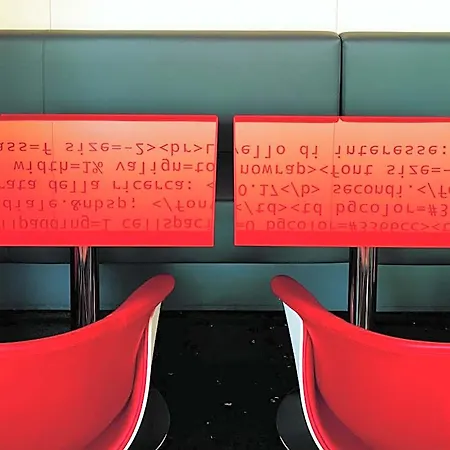 ass=f size=-2><br>L
width=1% valign=to
rata della ricerca: <
diale.&nbsp; </fon
llpadding=1 cellspaci
ello di interesse:
nowrap><font size=-
0.17</b> secondi.</f
</td><td bgcolor=#3
=0 bgcolor=#3366cc><t